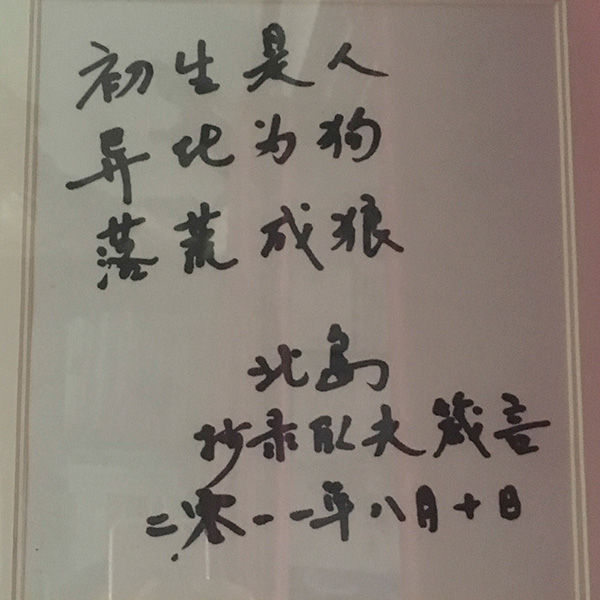 初生是人
异化为狗
落荒成狼
北岛
抄录臥夫箴言
二零一一年八月十日